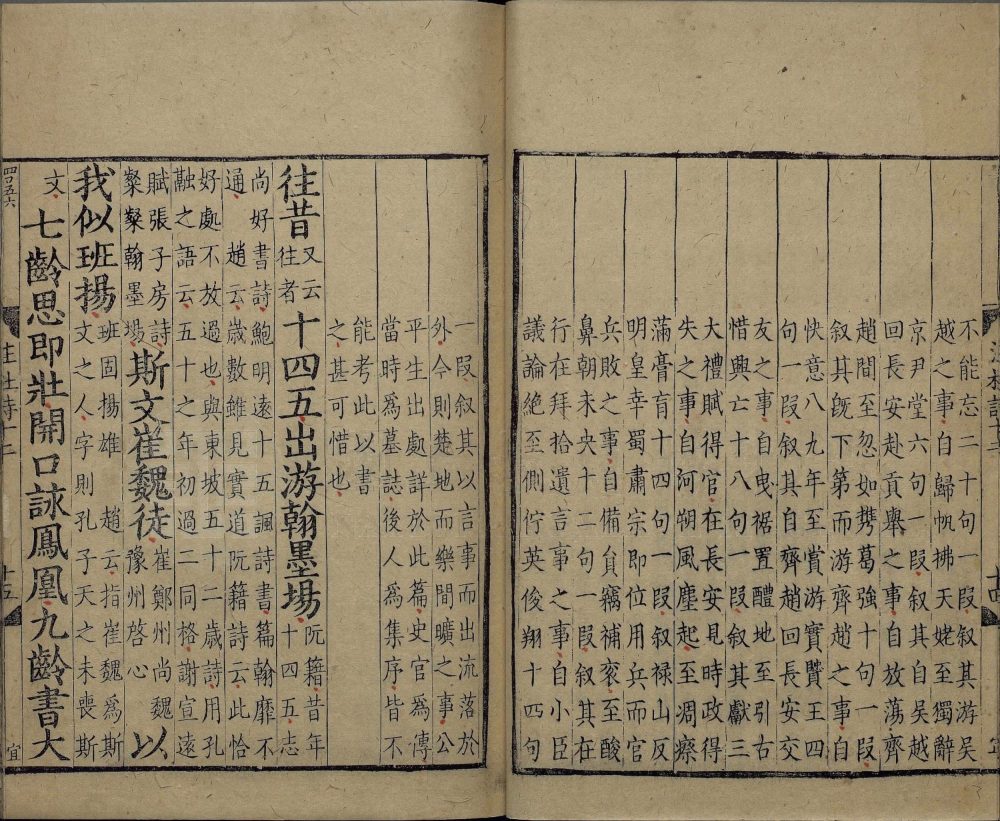 不能忘二十句一叚叙其游吴
越之事自歸帆拂天姥至獨辭
京尹堂六句一叚叙其自吴越
回長安赴貢舉之事自放蕩齊
趙間至忽如携葛強十句一叚
叙其旣下第而游齊趙之事自
快意八九年至賞游實賢王四
句一叚叙其自齊趙回長安交
友之事自曳裾置醴地至引古
惜興亡十八句一叚叙其獻三
大禮賦得官在長安見時政得
失之事自河朔風塵起至凋瘵
滿膏肓十四句一叚叙禄山反
明皇幸蜀肅宗即位用兵而官
兵敗之事自備負竊補衮至酸
鼻朝未央十二句一叚叙其在
行在拜拾遺言事之事自小臣
議論絶至側佇英俊翔十四句
一叚叙其以言事而出流落於
外今則楚地而樂間曠之事公
平生出處詳於此篇史官爲傳
當時爲墓誌後人爲集序皆不
能考此以書
之甚可惜也
往昔又云往者十四五出游翰墨場阮籍昔年十四五志
尚好書詩鮑明遠十五諷詩書篇翰靡不
通趙云歲數雖見實道阮籍詩云此恰
好處不放過也與東坡五十二歲詩用孔
融之語云五十之年初過二同格謝宣遠
賦張子房詩粲粲翰墨場斯文崔魏徒崔鄭州尚魏豫州啓心以
我似班揚班固揚雄趙云指崔魏爲斯文之人字則孔子天之未喪斯
文七齡思即壯開口詠鳳凰九齡書大
四百五六
十五
宜